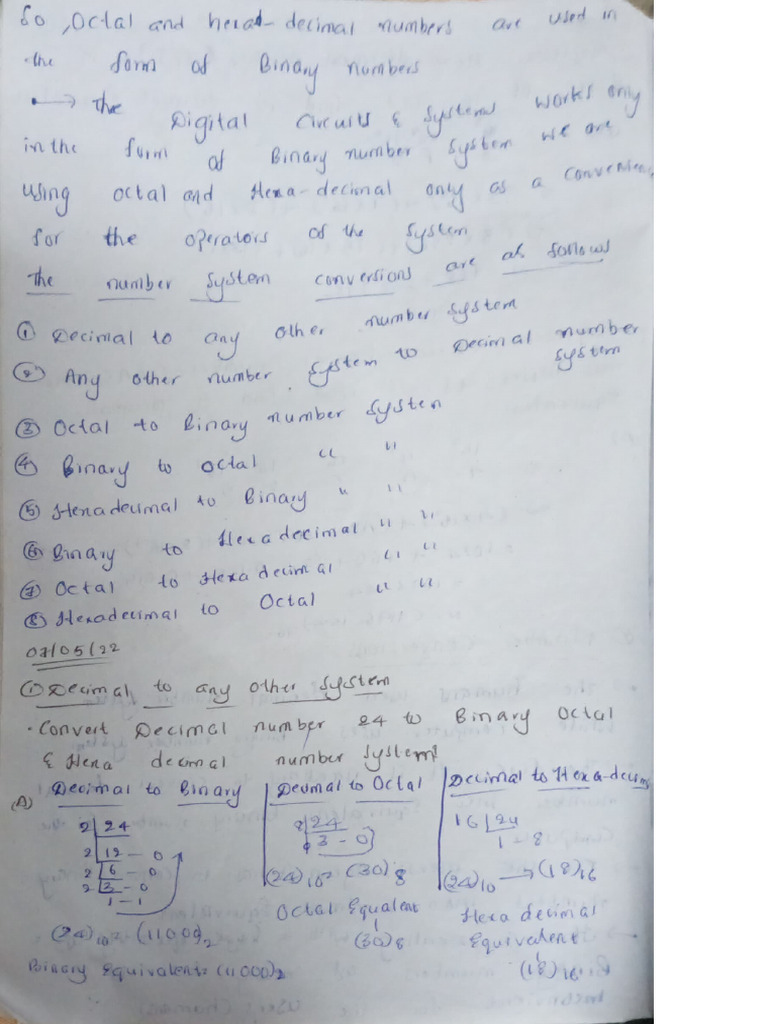 So, Octal and hexa-decimal numbers are used in
the form of Binary numbers
→ The Digital Circuits & Systems works only
in the form of Binary number system we are
using octal and Hexa-decimal only as a
for the operators of the system
The number system conversions are as follows
① Decimal to any other number system
② Any other number system to Decimal number
system
③ Octal to Binary number system
④ Binary to octal " "
⑤ Hexadecimal to Binary " "
⑥ Binary to Hexadecimal " "
⑦ Octal to Hexadecimal " "
⑧ Hexadecimal to Octal " "
07/05/22
① Decimal to any other system
· Convert Decimal number 24 to Binary Octal
& Hexa decimal number system?
(A) Decimal to Binary
2 | 24
2 | 12 - 0
2 | 6 - 0
2 | 3 - 0
1 - 1
(24)10 = (11000)2
Binary Equivalent = (11000)2
Decimal to Octal
8 | 24
3 - 0
(24)10 = (30)8
Octal Equalent
(30)8
Decimal to Hexa-decima
16 | 24
1 - 8
(24)10 → (18)16
Hexa decimal
Equivalent
(18)16